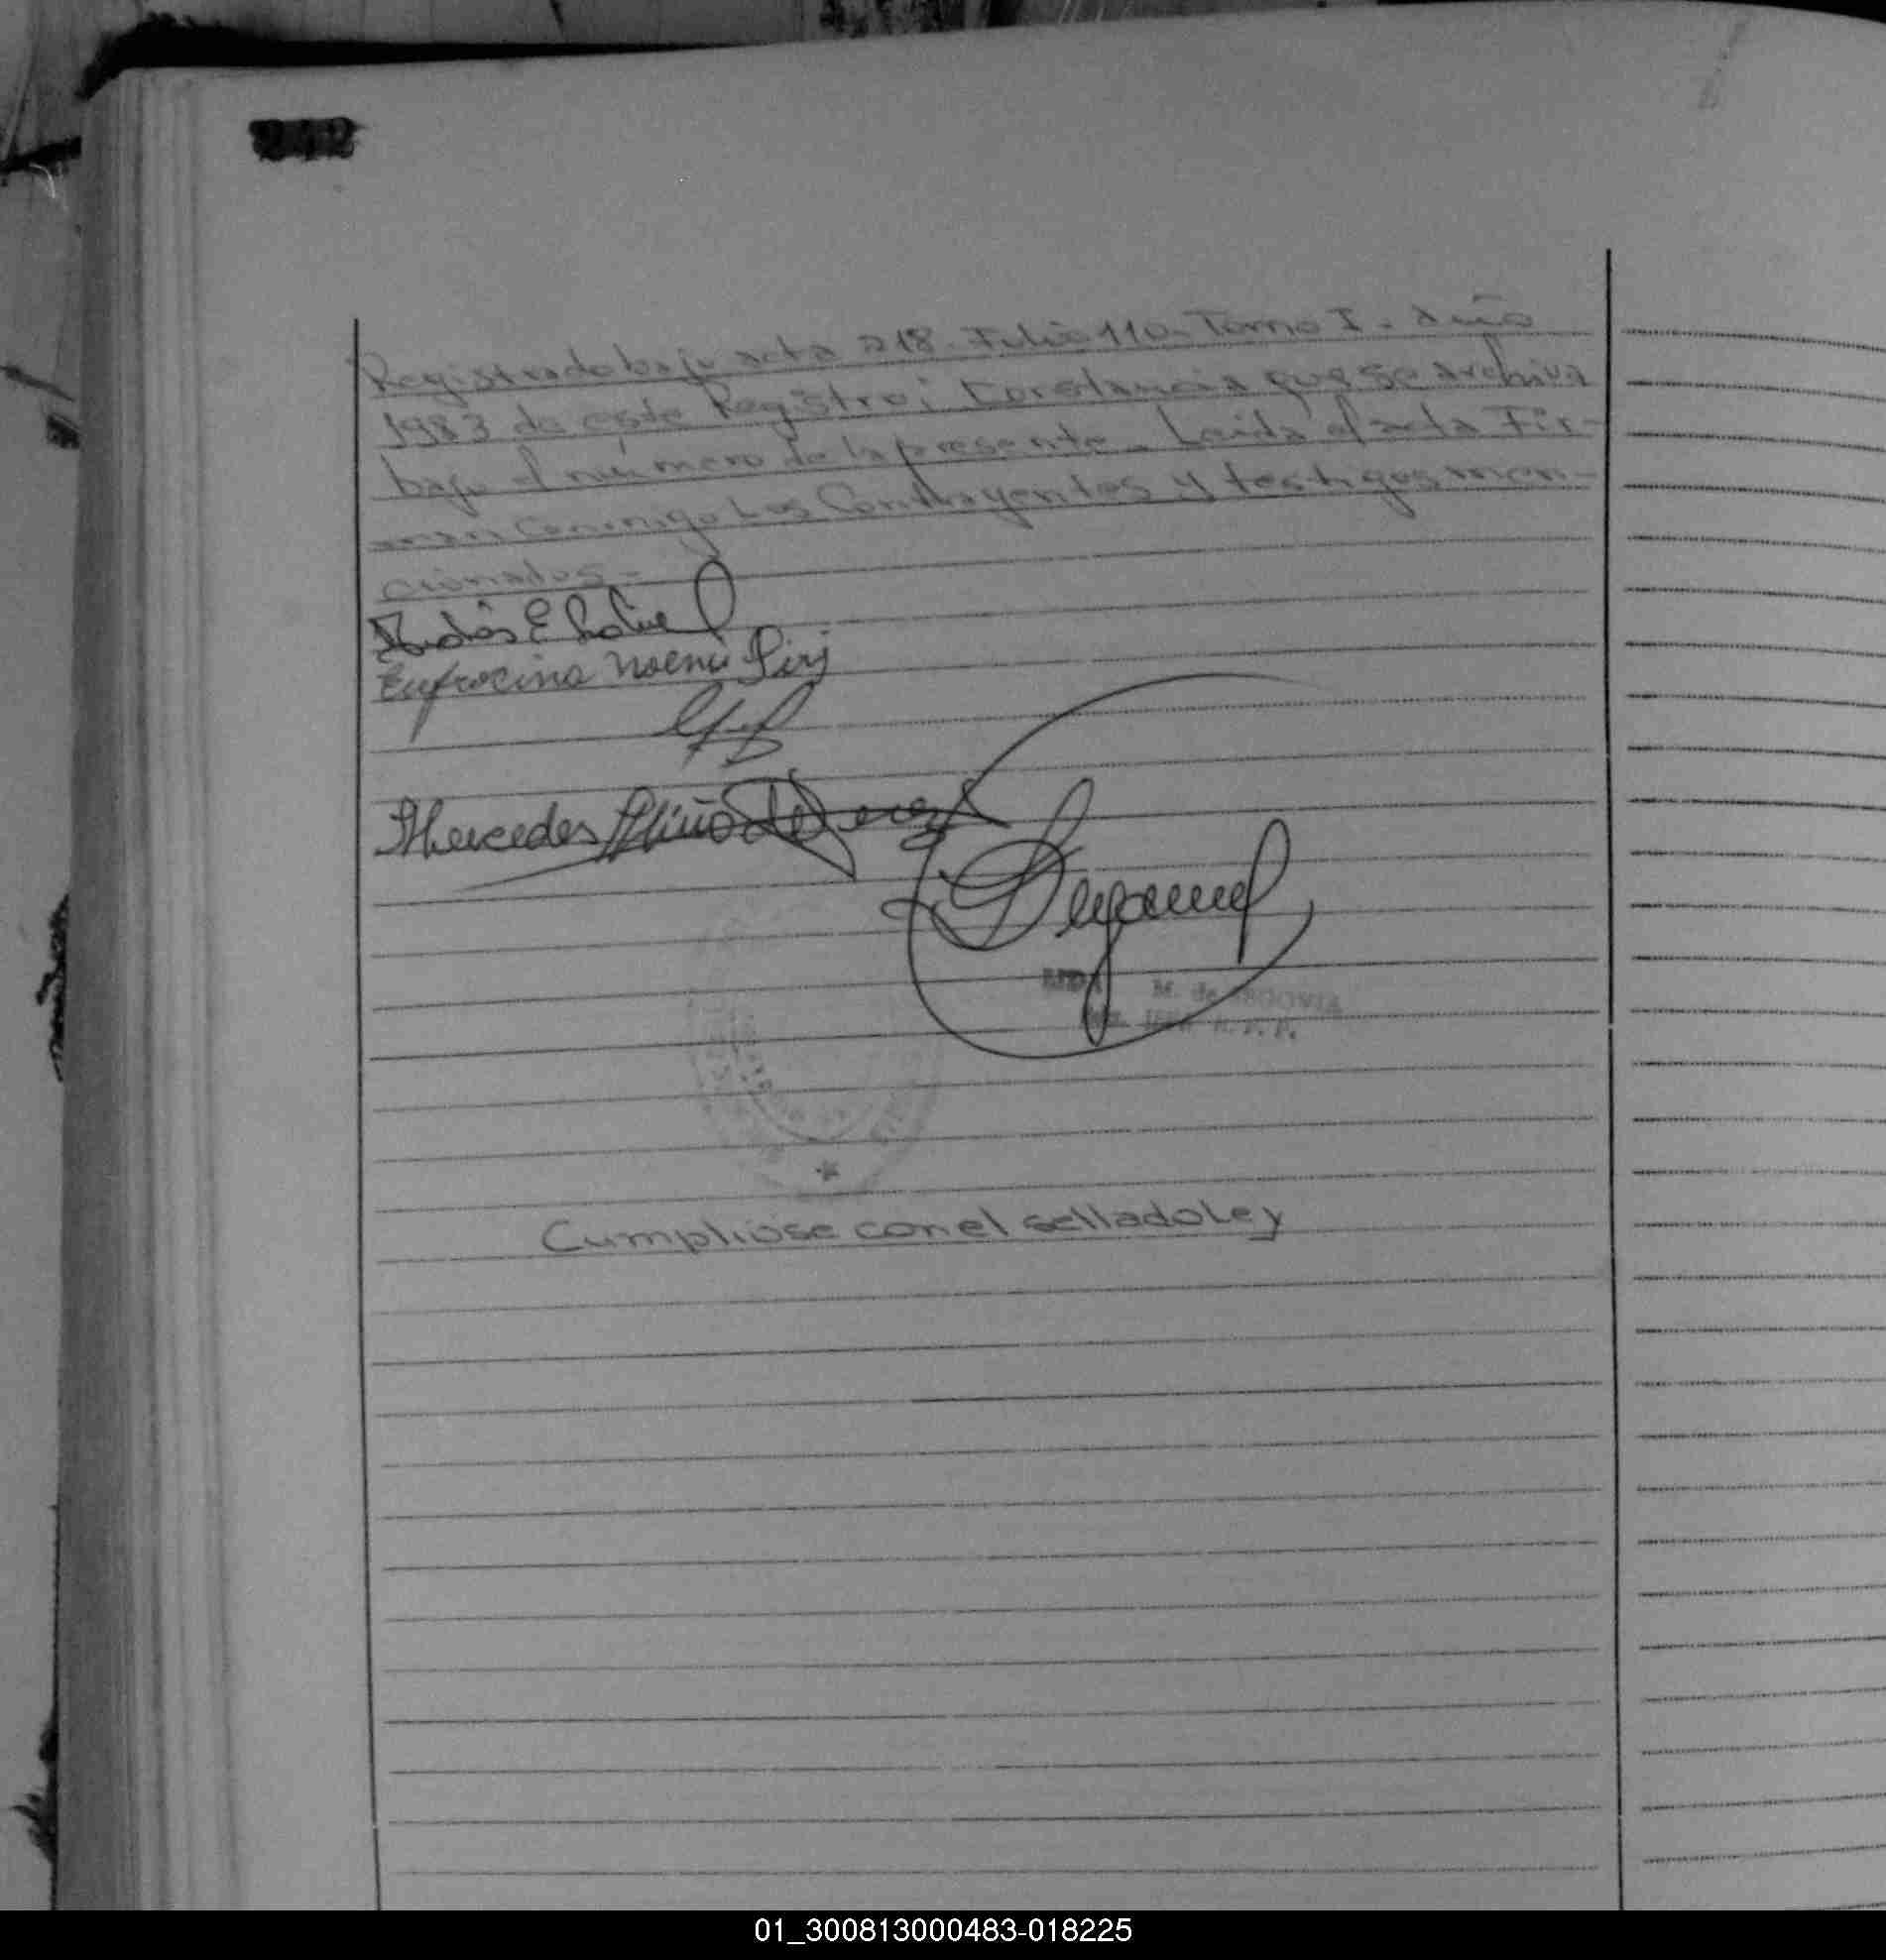 242
Registrado bajo acta 218. Folio 110. Tomo I. año
1983 de este Registro; Constancia que se archiva
bajo el número de la presente. Leida el acta Fir-
man conmigo Los Contrayentes y testigos men-
cionados-
Eufrocina Noemi
Mercedes Miño de Perez
M. de SEGOVIA
Cumpliose con el sellado Ley
01_300813000483-018225